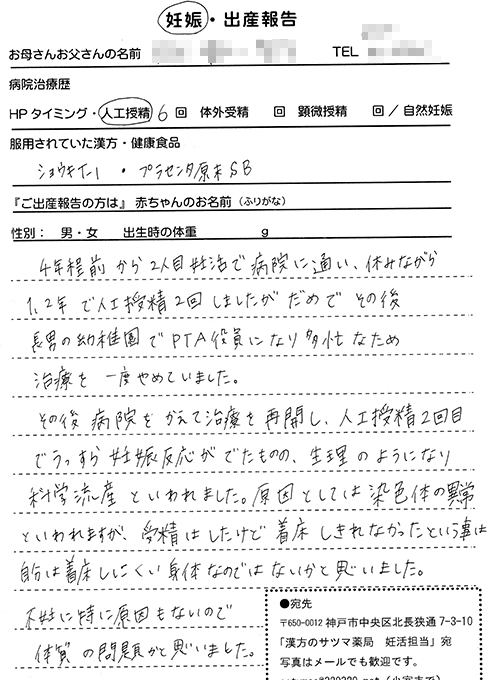 妊娠・出産報告
お母さんお父さんの名前 TEL
病院治療歴
HPタイミング・人工授精 6 回 体外受精 回 顕微授精 回/自然妊娠
服用されていた漢方・健康食品
ショウキT-1 ・ プラセンタ原末SB
『ご出産報告の方は』赤ちゃんのお名前(ふりがな)
性別： 男・女 出生時の体重 g
4年程前から2人目妊活で病院に通い、休みながら
1、2年で人工授精2回しましたがだめでその後
長男の幼稚園でPTA役員になり多忙なため
治療を一度やめていました。
その後病院をかえて治療を再開し、人工授精2回目
でうっすら妊娠反応がでたものの、生理のようになり
科学流産といわれました。原因としては染色体の異常
といわれますが、受精はしたけど着床しきれなかったという事は
自分は着床しにくい身体なのではないかと思いました。
不妊に特に原因もないので
体質の問題かと思いました。
●宛先
〒650-0012 神戸市中央区北長狭通 7-3-10
「漢方のサツマ薬局 妊活担当」宛
写真はメールでも歓迎です。